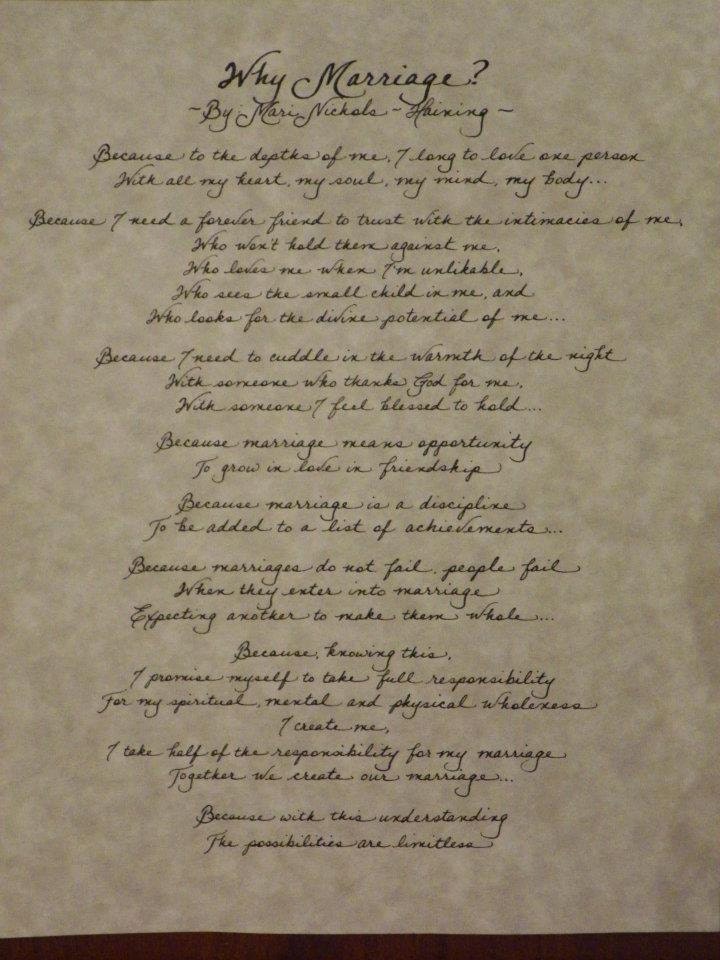 Why Marriage?
~ By: Mari Nichols ~ Haining ~
Because to the depths of me, I long to love one person
With all my heart, my soul, my mind, my body...
Because I need a forever friend to trust with the intimacies of me,
Who won't hold them against me,
Who loves me when I'm unlikable,
Who sees the small child in me, and
Who looks for the divine potential of me...
Because I need to cuddle in the warmth of the night
With someone who thanks God for me,
With someone I feel blessed to hold...
Because marriage means opportunity
To grow in love in friendship
Because marriage is a discipline
To be added to a list of achievements...
Because marriages do not fail, people fail
When they enter into marriage
Expecting another to make them whole...
Because, knowing this,
I promise myself to take full responsibility
For my spiritual, mental and physical wholeness
I create me,
I take half of the responsibility for my marriage
Together we create our marriage...
Because with this understanding
The possibilities are limitless